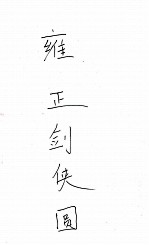 雍正剑侠圆